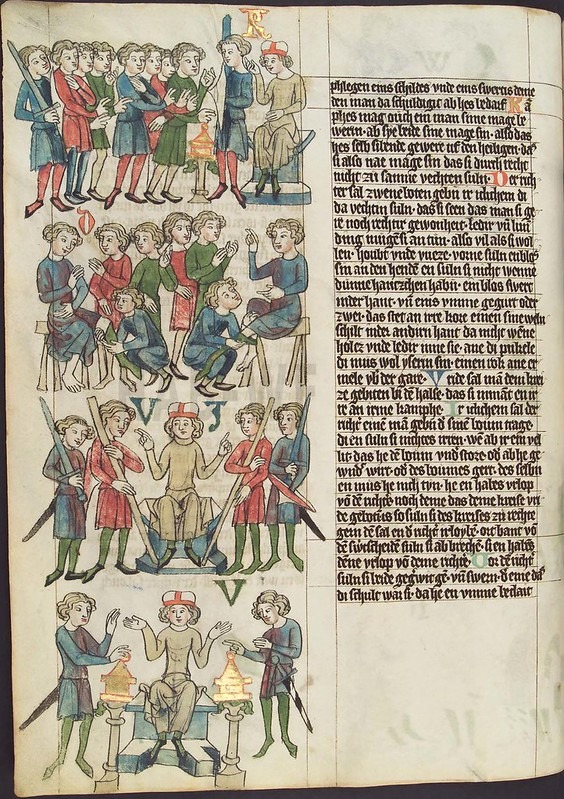 phlegen eins schildes vnde eins swertis deme
den man da schuldigit ab hes bedarf K a
phes mag ouch ein man sime mage be
wern· ab sye beide sine mage sin· also das
hes selb sibende gewere uf den heiligen· das
si also nae mage sin das si durch recht
nicht zu samne vechten suln· Der rich
ter sal zwene boten gebin ir ichchem di
da vechtin suln· das si seen das man si ge
re noch rechter gewonheit· ledir vn lin
ding muge si an tun· also vil als si wol
len· houbt vnde vueze· vorne suln en blos
sin an den hende· en suln si nicht wenne
dunne hantzchen habin· ein blos swert
in der hant· vn eins vmme gegurt oder
zwei· das stet an irre kore einen sinewelin
schilt in der andirn hant da nicht wene
holcz vnde ledir ane sie· ane di pukele
di mus wol ysern sin· einen rok ane er
mele vbir der gare· Vride sal man dem krei
ze gebiten bi dem halse· das si nimant en ir
re an irme kamphe· Ir ichchem sal der
richter einen man gebin der sinen boum trage·
di en suln si nichtes irren· wen ab ir ein vel
lit das he den boum vnd stoze· od ab he ge
wund wirt· od des boumes gert· des selbin
en mus he nicht tun· he en habes vrlop
von deme richter· noch deme das deme kreise vri
de gebotin is so suln si des kreises zu rechte
gern den sal en di richter irloube· ort bant von
den swertscheiden suln si ab brechen· si en habes
denne vrlop von deme richter· vor deme richter
suln si beide gegerwit gen· vn swern· der eine das
di schult war si· da he en vmme beclait
K
D
V I
V